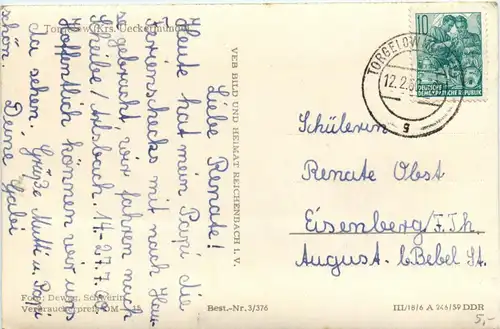 Torgelow, Krs. Ueckermünde
Liebe Renate!
Heute hat mein Papi die
Ferienschecks mit nach Hau-
se gebracht wir fahren nach
14.-27.7.60
Hoffentlich können wir uns
da sehen. Grüße Mutti u. Papi
schön. Deine Gabi
Foto: Dewor, Schwerin
Verbraucherpreis DM -,15
VEB BILD UND HEIMAT REICHENBACH I. V.
Best.-Nr. 3/376
TORGELOW
12.2.6
g
10
DEUTSCHE
DEMOKRATISCHE REPUBLIK
Schülerin
Renate Obst
Eisenberg/Th.
August-Bebel St.
III/18/6 A 246/59 DDR
5,-